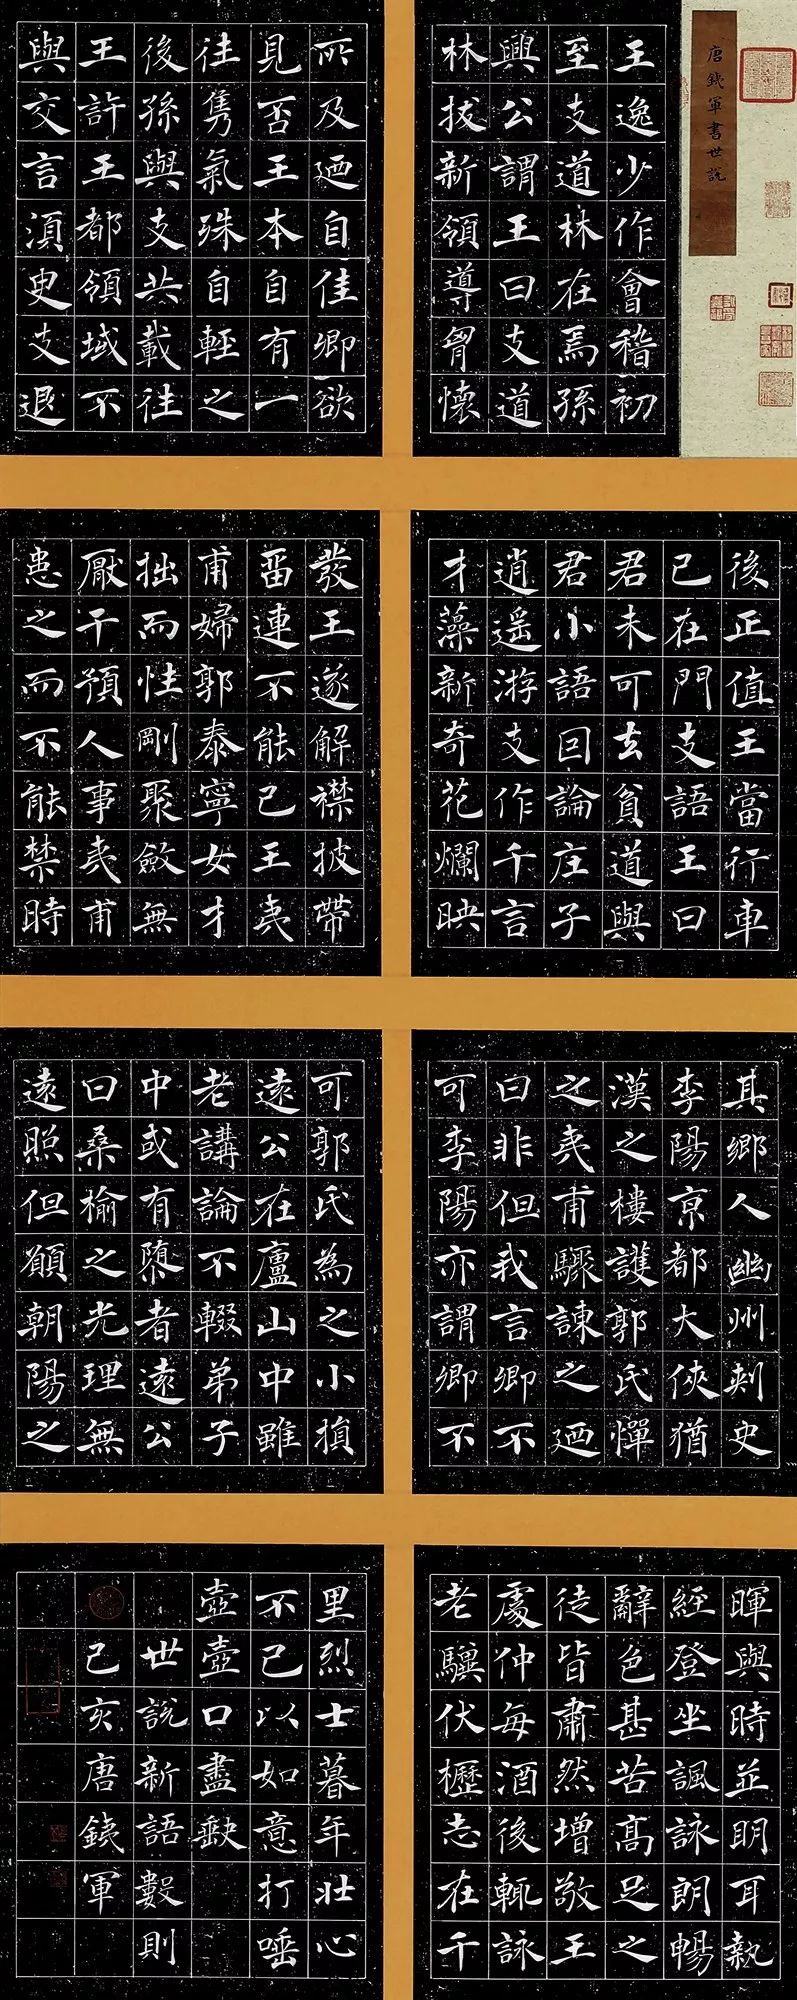 唐銕軍書世說
王逸少作會稽初
至支道林在焉孫
興公謂王曰支道
林拔新領導胷懷
所及廼自佳卿欲
見否王本自有一
往雋氣殊自輕之
後孫與支共載往
王許王都領域不
與交言湏史支退
後正值王當行車
已在門支語王曰
君未可去貧道與
君小語回論庄子
逍遥游支作千言
才藻新奇花爛映
發王遂解襟披帶
畱連不能已王夷
甫婦郭泰寧女才
拙而性剛聚斂無
厭干預人事夷甫
患之而不能禁時
其鄉人幽州刺史
李陽京都大俠猶
漢之樓護郭氏憚
之夷甫驟諫之廼
曰非但我言卿不
可李陽亦謂卿不
可郭氏為之小損
遠公在廬山中雖
老講論不輟弟子
中或有墮者遠公
曰桑榆之光理無
遠照但願朝陽之
暉與時並明耳執
經登坐諷詠朗暢
辭色甚苦高足之
徒皆肅然增敬王
處仲每酒後輒詠
老驥伏櫪志在千
里烈士暮年壯心
不已以如意打唾
壺壺口盡缺
世說新語數則
己亥唐銕軍